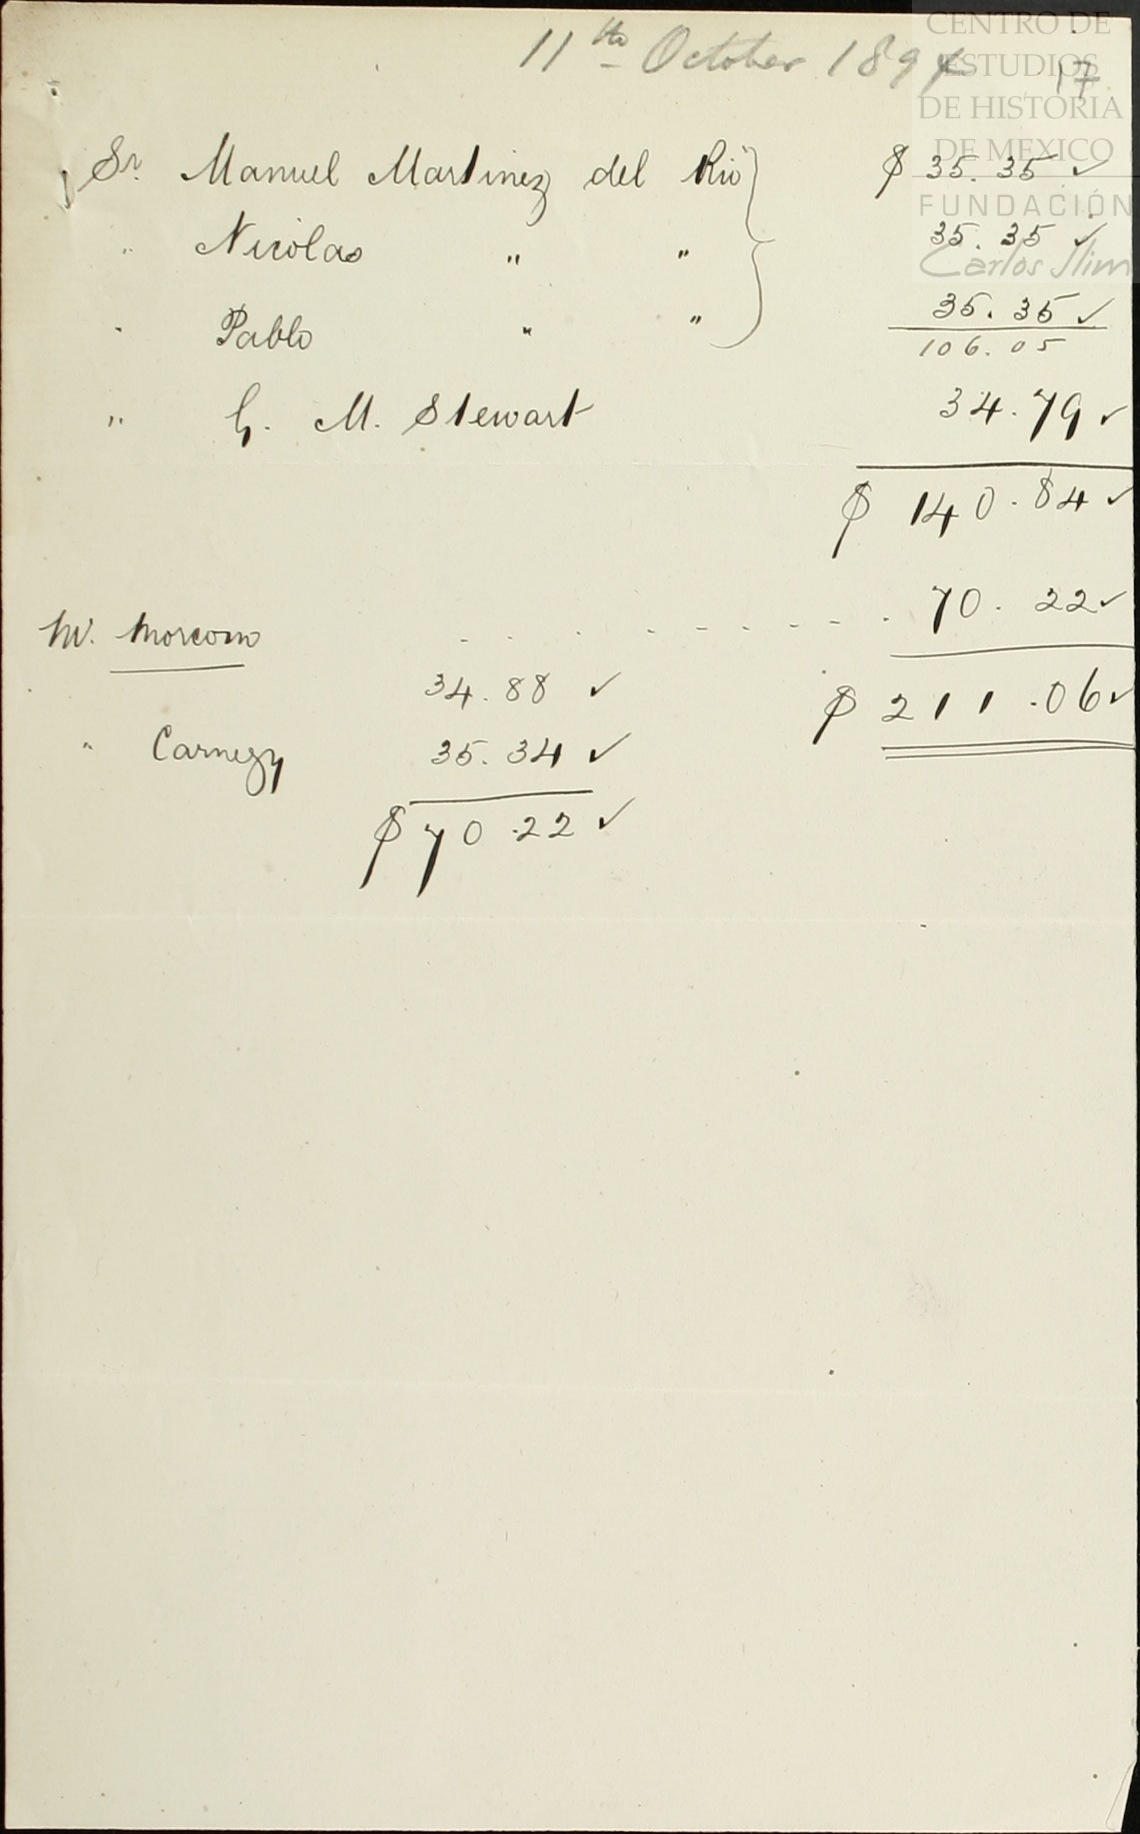 CENTRO DE
ESTUDIOS
DE HISTORIA
DE MEXICO
FUNDACIÓN
Carlos Slim
11th October 1894
17.
Sr. Manuel Martinez del Rio } $ 35.35 ✓
" Nicolas " " 35.35 ✓
" Pablo " " 35.35 ✓
106.05
" G. M. Stewart 34.79 ✓
$ 140.84 ✓
Mr. Morcom - - - - - - - - - 70.22 ✓
34.88 ✓
$ 211.06 ✓
" Carnegy 35.34 ✓
$ 70.22 ✓